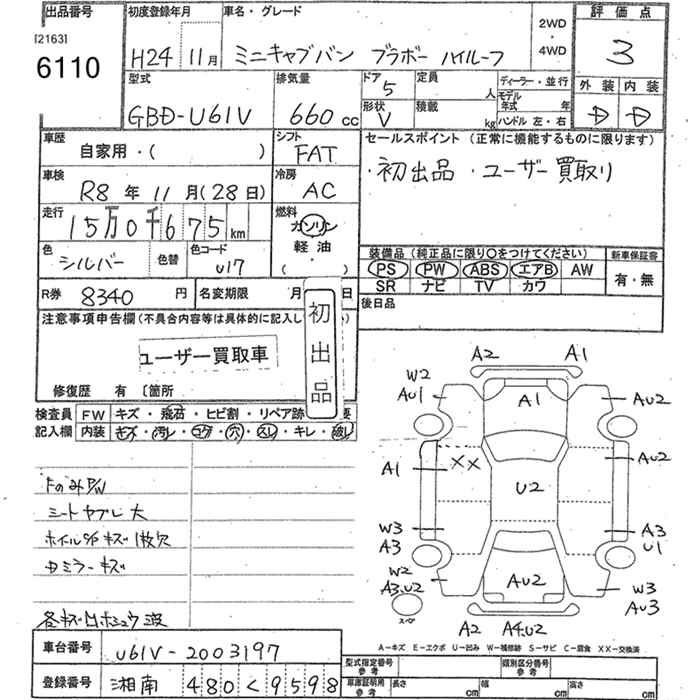 出品番号 初度登録年月 車名・グレード 2WD・4WD 評価点
[2163]
6110 H24 11月 ミニキャブバン ブラボー ハイルーフ 3
型式 排気量 ドア 5 定員 人 ディーラー・並行 外装 内装
GBD-U61V 660cc 形状 V 積載 kg モデル年式 年 D D
ハンドル 左・右
車歴 シフト セールスポイント (正常に機能するものに限ります)
自家用・( ) FAT ・初出品 ・ユーザー買取り
車検 冷房
R8年11月(28日) AC
走行 燃料
15万0千675km ガソリン
色 色替 色コード 軽油
シルバー U17 ( )
装備品 (純正品に限り○をつけてください) 新車保証書
PS PW ABS エアB AW 有・無
SR ナビ TV カワ
R券 8340円 名変期限 月 日 後日品
初出品
注意事項申告欄(不具合内容等は具体的に記入し
ユーザー買取車
修復歴 有 〔箇所
検査員 FW キズ・飛石・ヒビ割・リペア跡 要
記入欄 内装 キズ・汚レ・コゲ・穴・スレ・キレ・破レ
A2 A1
W2 AU1 A1 AU2
A1 XX U2 AU2
W3 A3 A3 U1
W2 A3.U2 AU2 W3 AU3
スペア A2 A4.U2
FのみP/W
シートヤブレ大
ホイルS/Pキズ 1枚欠
中ミラーキズ
A-キズ E-エクボ U-凹み W-補修跡 S-サビ C-腐食 XX-交換済
車台番号 U61V-2003197
登録番号 湘南 480 く 9598
型式指定番号 参考 類別区分番号 参考
車庫証明用 参考 長さ cm 幅 cm 高さ cm